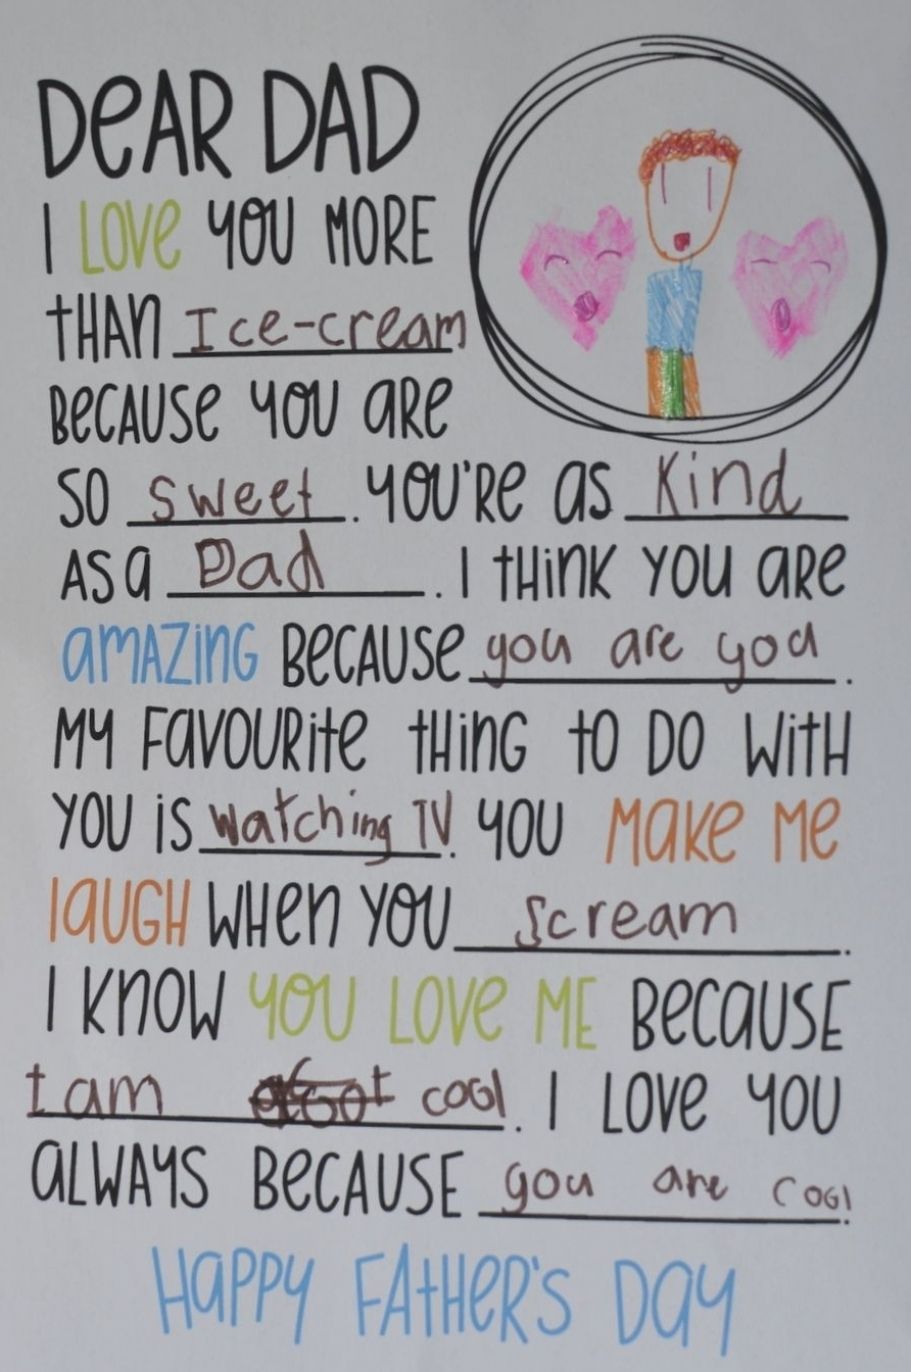 DeAR DAD
I LOVe YOU MORE
tHAN Ice-cream
BeCAUSe YOU aRe
SO sweet. YOU'Re aS Kind
AS a Dad. I tHiNK YOU aRe
aMAZiNG BeCAUSe you are you.
MY FaVOURite tHiNG tO DO WitH
YOU iS watching TV. YOU MaKe Me
laUGH WHeN YOU scream.
I KNOW YOU LOVe ME BeCaUSE
I am cool. I LOVe YOU
aLWAYS BeCAUSE you are cool.
HaPPY FAtHeR'S DaY